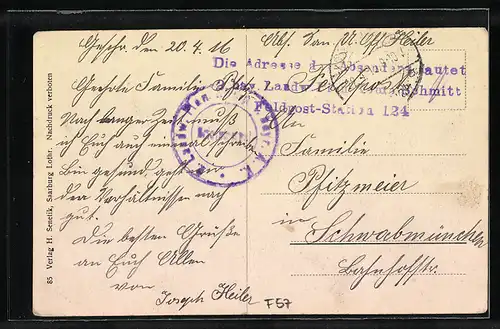 Geschr. den 20.4.16
Geehrte Familie
Nach langer Zeit muß
ich Euch auch einmal schreiben
Bin gesund, geht
den Verhältnissen nach
gut.
Die besten Grüße
an Euch Allen
von
Joseph Heiler
Abs. San. U. Off. Heiler
Die Adresse d. Absenders lautet
Landw. Schmitt
Feldpost-Station 124
Feldpost
An
Familie
Pfitzmeier
in
Schwabmünchen
Bahnhofstr.
85 Verlag H. Senelik, Saarburg Lothr. Nachdruck verboten
F57